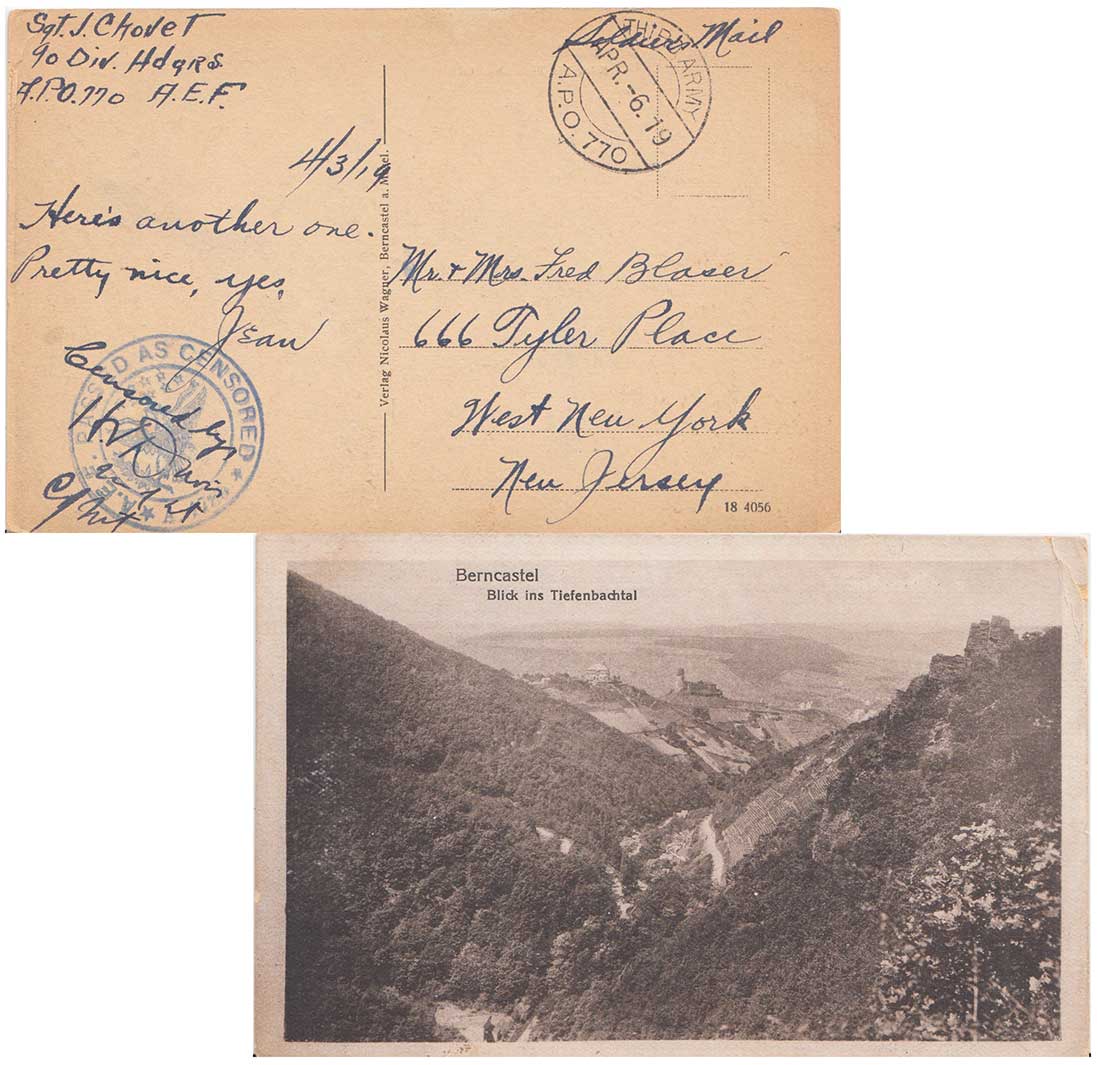 Sgt. J. Chovet
90 Div. Hdqrs.
A.P.O. 770 A.E.F.
Soldiers Mail
THIRD ARMY
APR.-6.19
A.P.O. 770
4/3/19
Here's another one.
Pretty nice, yes,
Jean
Mr. + Mrs. Fred Blaser
666 Tyler Place
West New York
New Jersey
Verlag Nicolaus Wagner, Berncastel a. Mosel.
A.E.F. PASSED AS CENSORED
Censored by
18 4056
Berncastel
Blick ins Tiefenbachtal